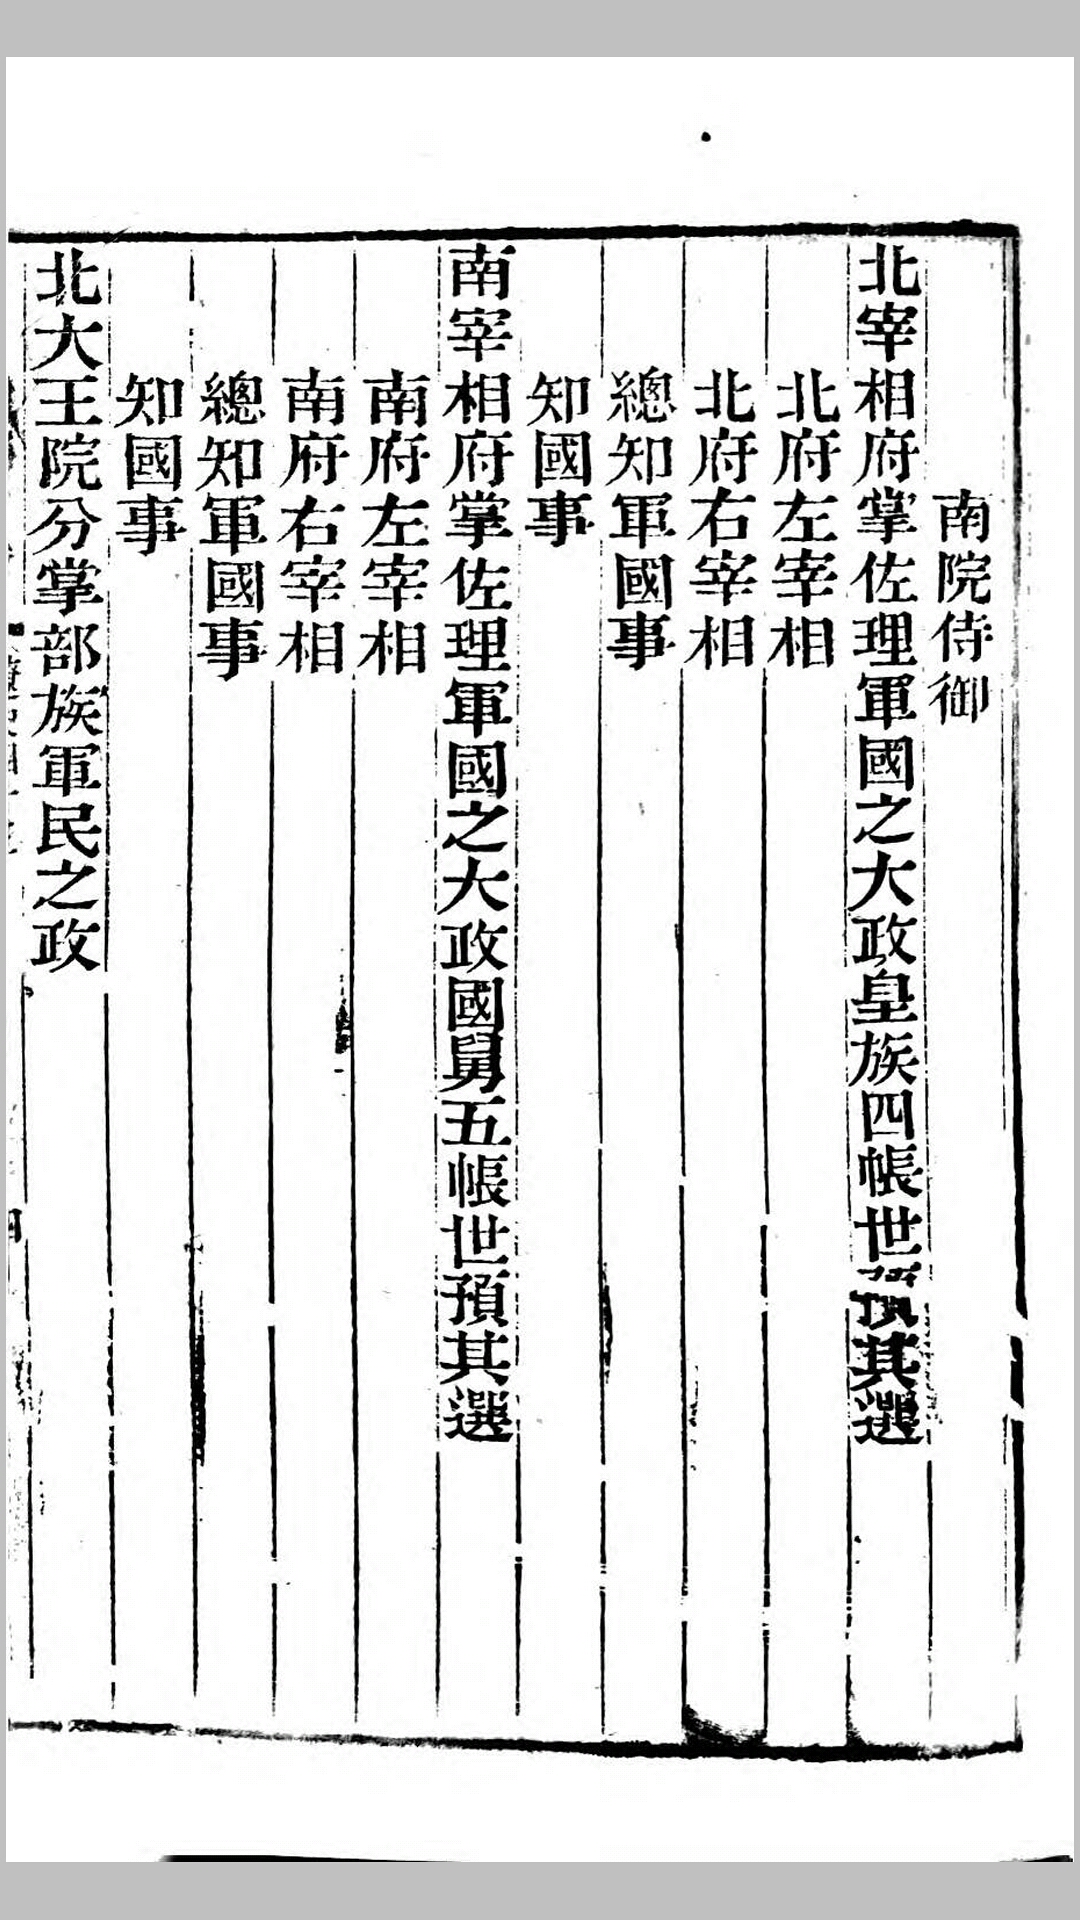 南院侍御
北宰相府掌佐理軍國之大政皇族四帳世預其選
北府左宰相
北府右宰相
總知軍國事
知國事
南宰相府掌佐理軍國之大政國舅五帳世預其選
南府左宰相
南府右宰相
總知軍國事
知國事
北大王院分掌部族軍民之政